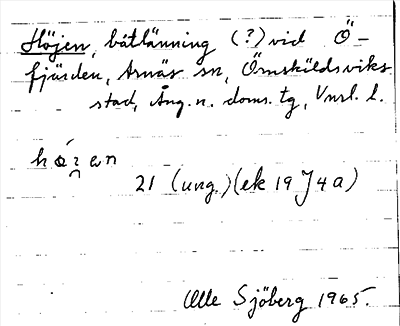 Höjen, båtlänning (?) vid Ö-
fjärden, Arnäs sn, Örnsköldsviks
stad, Ång. n. doms. tg, Vnrl. l.
21 (ung.) (ek 19 J 4 a)
Olle Sjöberg 1965.